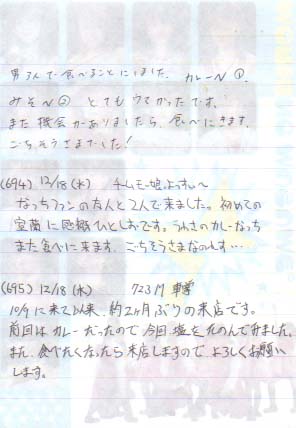 男3人で食べることにしました。カレー〜①
みそ〜② とてもウマかったです。
また機会がありましたら、食べにきます。
ごちそうさまでした!
(694) 12/18(水) チームモー娘。よっすぃ〜
なっちファンの友人と2人で来ました。初めての
室蘭に感激ひとしおです。うわさのカレーなっち
また食べに来ます。ごちそうさまなのれす…
(695) 12/18(水) 723M 車掌
10/9に来て以来、約2ヶ月ぶりの来店です。
前回はカレーだったので今回塩をたのんでみました。
また、食べたくなったら来店しますのでよろしくお願い
します。